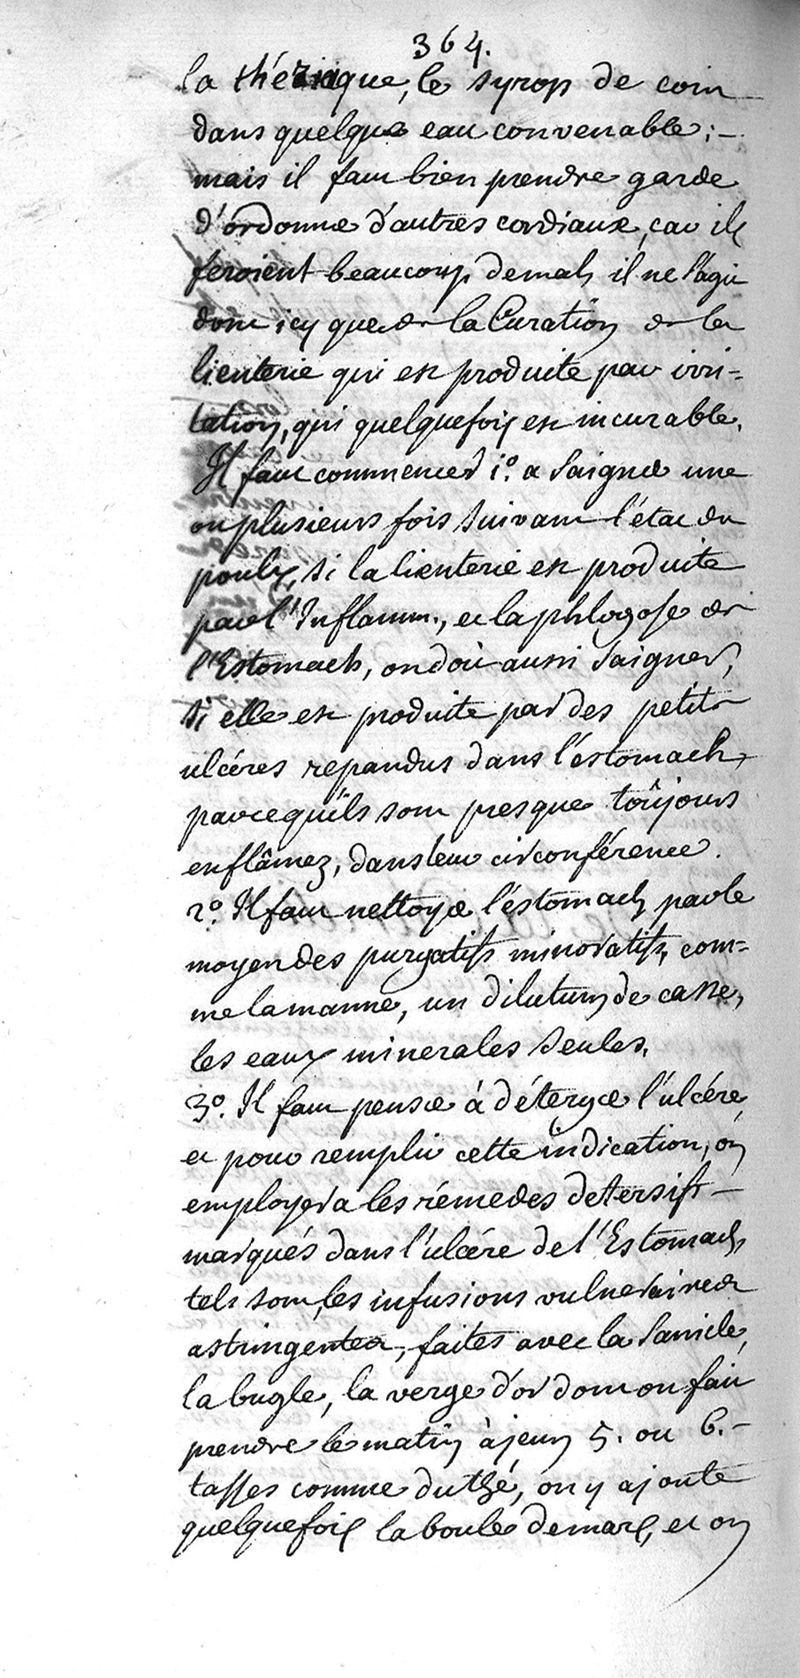 364.
la thériaque, le syrop de coin
dans quelque eau convenable; -
mais il faut bien prendre garde
d'ordonner d'autres cordiaux, car ils
feroient beaucoup de mal, il ne s'agit
donc icy que de la Curation de la
lienterie qui est produite par irri-
tation, qui quelquefois est incurable.
Il faut commencer 1.º a saigner une
ou plusieurs fois suivant l'état du
poulx, si la lienterie est produite
par l'Inflamm., et la phlogose de
l'Estomach, on doit aussi saigner,
si elle est produite par des petits
ulcéres repandus dans l'éstomach,
parcequ'ils sont presque toûjours
enflâmez, dans leur circonférence.
2.º Il faut nettoyer l'éstomach par le
moyen des purgatifs minoratifs, com-
me la manne, un dilutum de casse,
les eaux minerales seules.
3.º Il faut penser à déterger l'ulcére,
et pour remplir cette indication, on
employera les rémedes detersifs -
marqués dans l'ulcére de l'Estomach,
tels sont, les infusions vulneraires
astringentes, faites avec la sanicle,
la bugle, la verge d'or dont on fait
prendre le matin à jeun 5. ou 6. -
tasses comme du thé, on y ajoute
quelquefois la boule de mars, et on